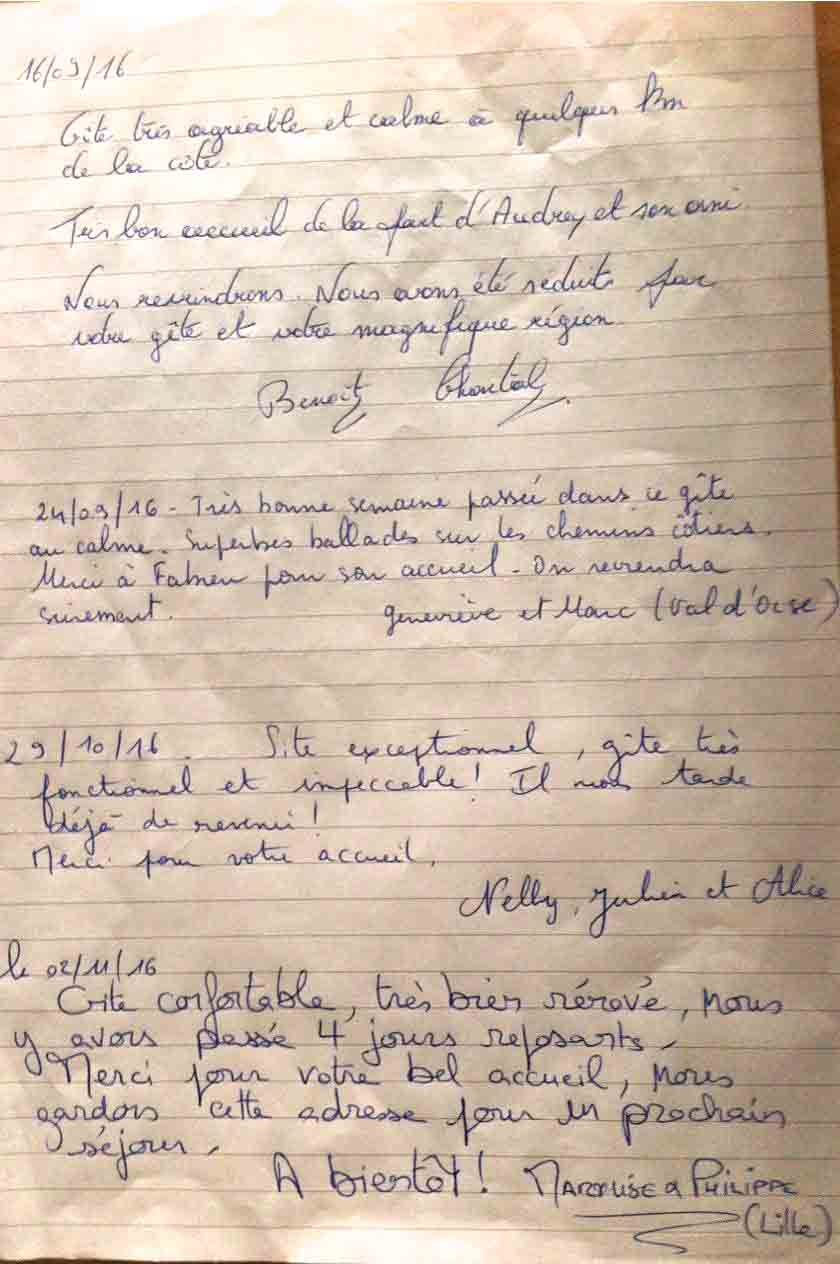 16/09/16
Gîte très agréable et calme à quelques km
de la côte.
Très bon accueil de la part d'Audrey et son ami.
Nous reviendrons. Nous avons été séduits par
votre gîte et votre magnifique région
Benoit Chantal
24/09/16 - Très bonne semaine passée dans ce gîte
au calme. Superbes ballades sur les chemins côtiers.
Merci à Fabien pour son accueil - On reviendra
surement. Geneviève et Marc (Val d'Oise)
29/10/16. Site exceptionnel, gîte très
fonctionnel et impeccable! Il nous tarde
déjà de revenir!
Merci pour votre accueil.
Nelly, Julien et Alice
le 02/11/16
Gite confortable, très bien rénové, nous
y avons passé 4 jours reposants.
Merci pour votre bel accueil, nous
gardons cette adresse pour un prochain
séjour.
A bientôt! MARYLISE & PHILIPPE
(Lille)